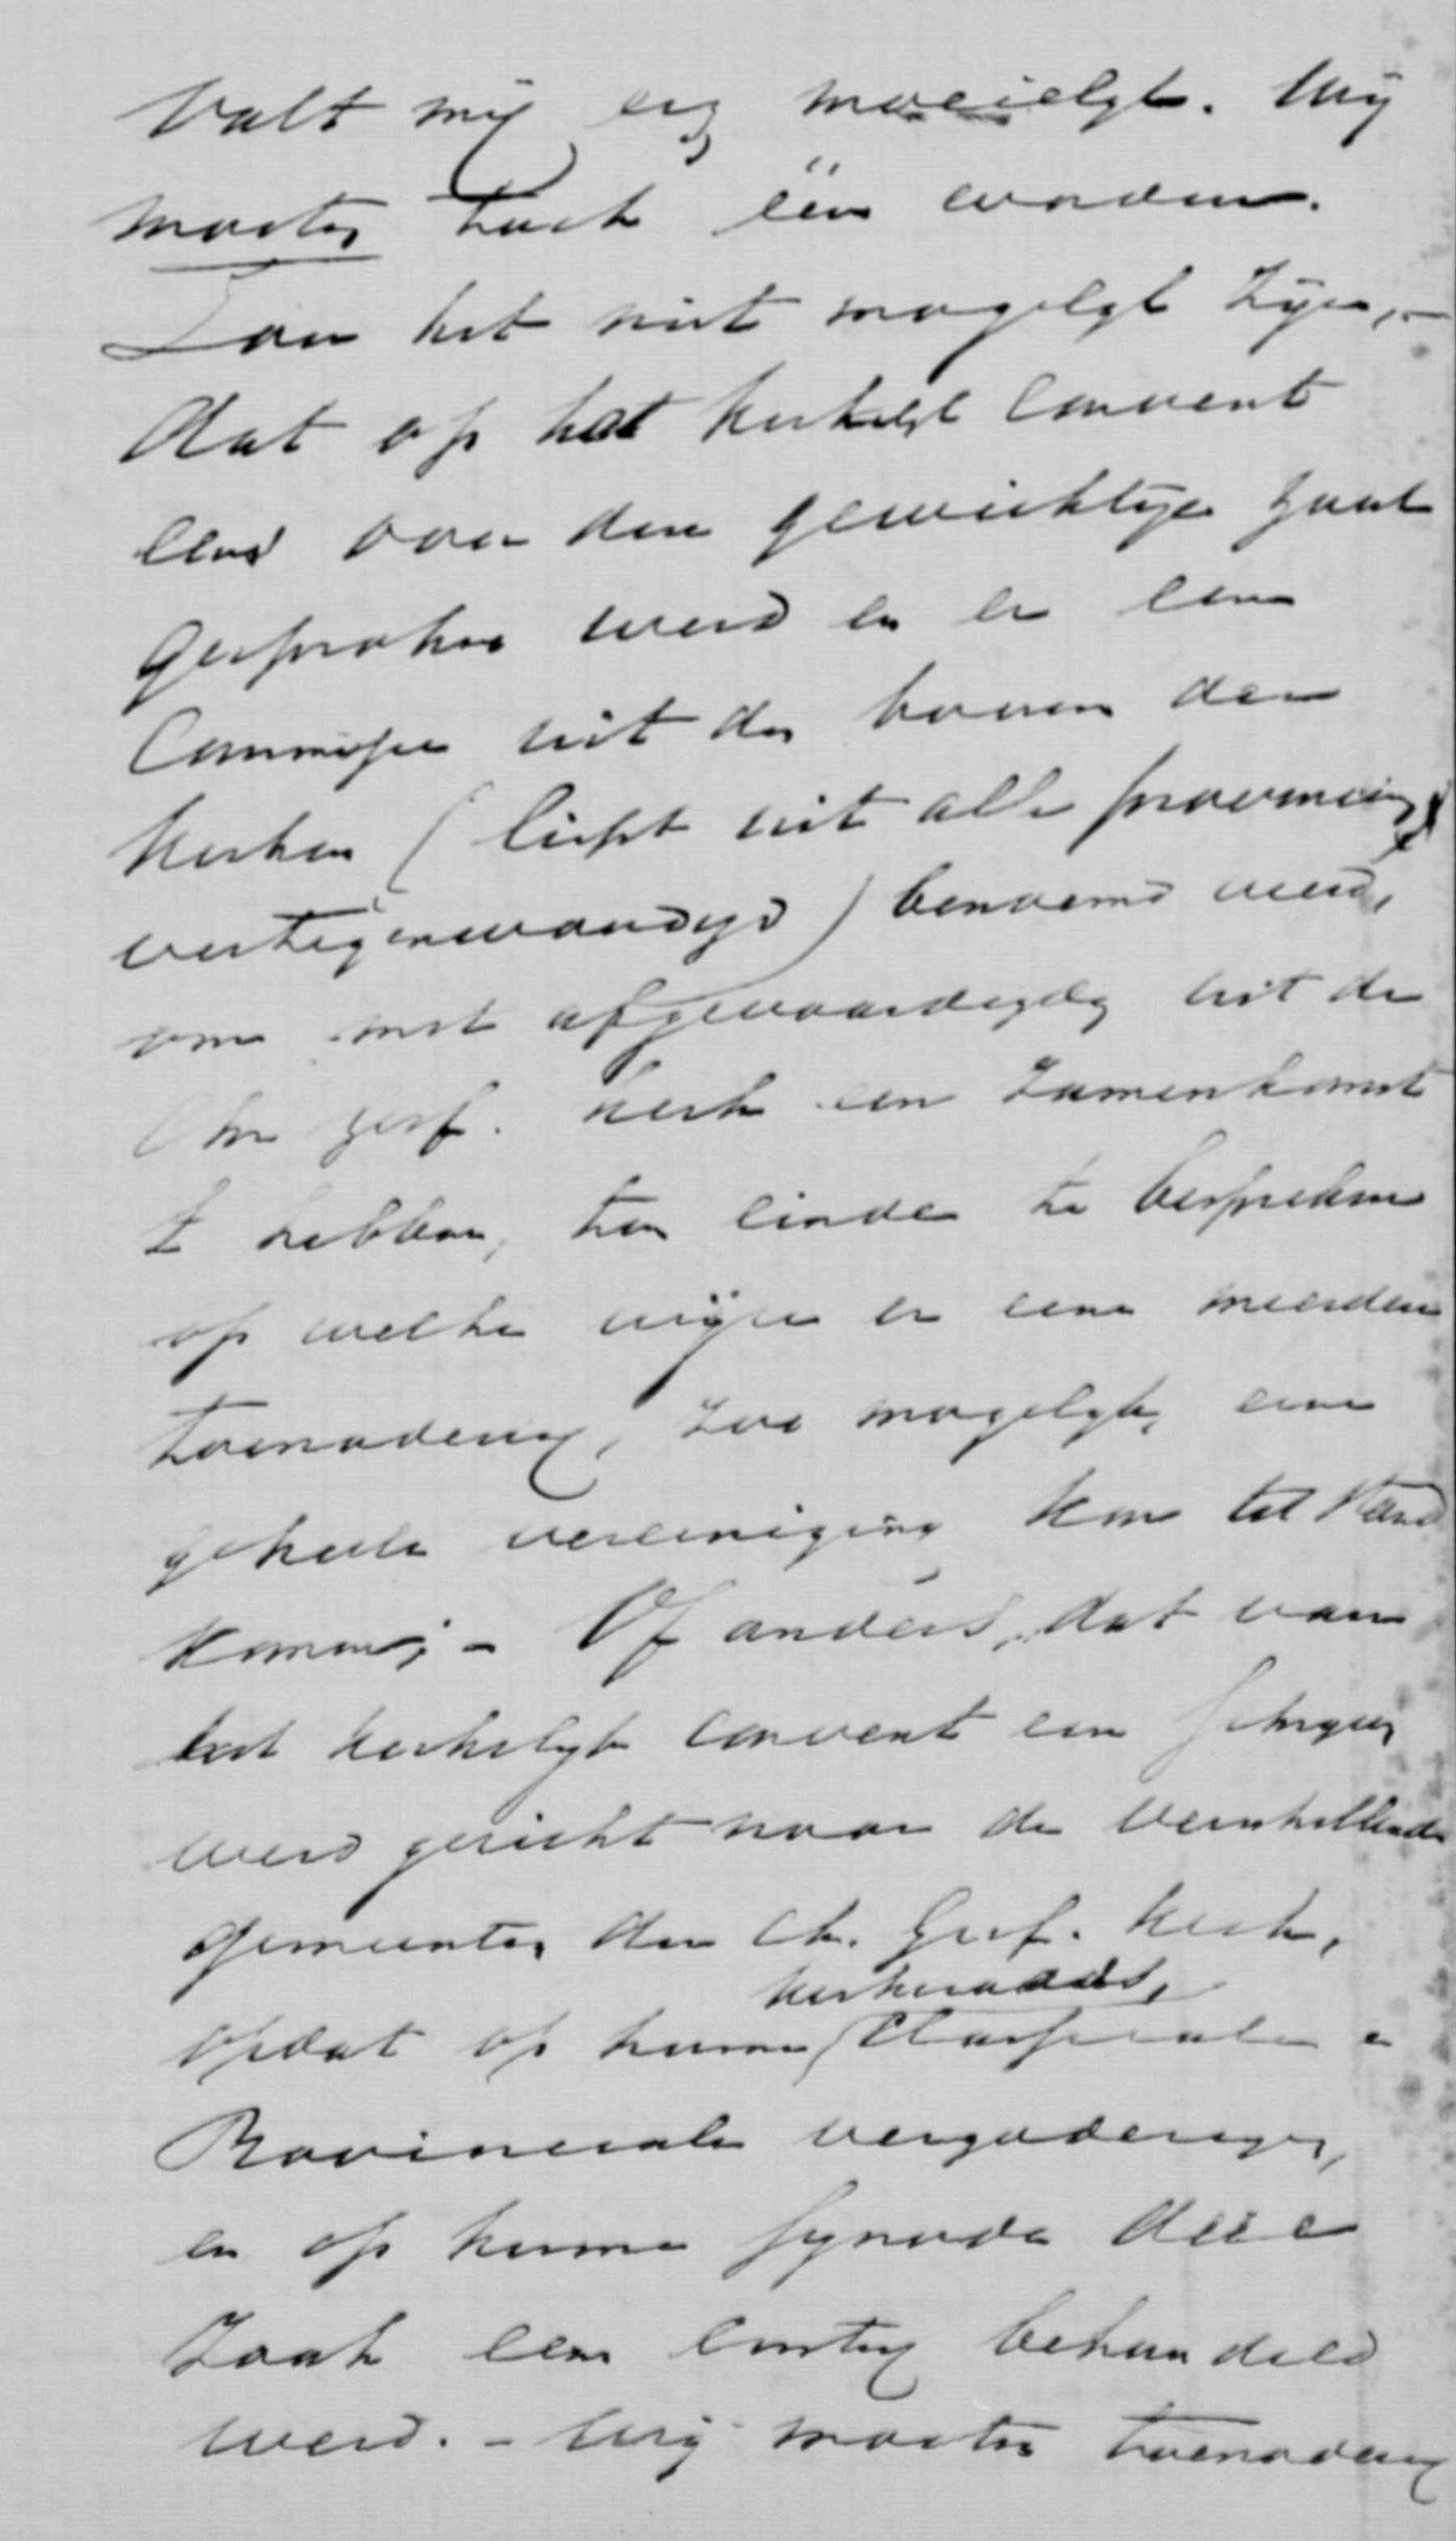 valt mij erg moeielyk. Wij
moeten toch één worden.
Zou het niet mogelyk zijn,-
dat op het kerkelyk Convent
eens over dese gewichtige zaak
gesproken werd en er een
Commissie uit de broeders der
kerken (liefst uit alle provincies
vertegenwoordigd) benoemd werd,
om met afgevaardigden uit de
Chr geref. kerk een zamenkomst
te hebben, ten einde te bespreken
op welke wijze er eene meerdere
toenadering, zoo mogelyk, eene
geheele vereeniging kon tot stand
komen; - Of anders, dat van
het kerkelyk convent een schryven
werd gericht naar de verschillende
gemeenten der Ch. Geref. kerk,
kerkeraads,
opdat op hunne Classicale en
Provinciale vergaderingen,
en op hunne Synode deze
zaak eens ernstig behandeld
werd. - Wij moeten toenadering